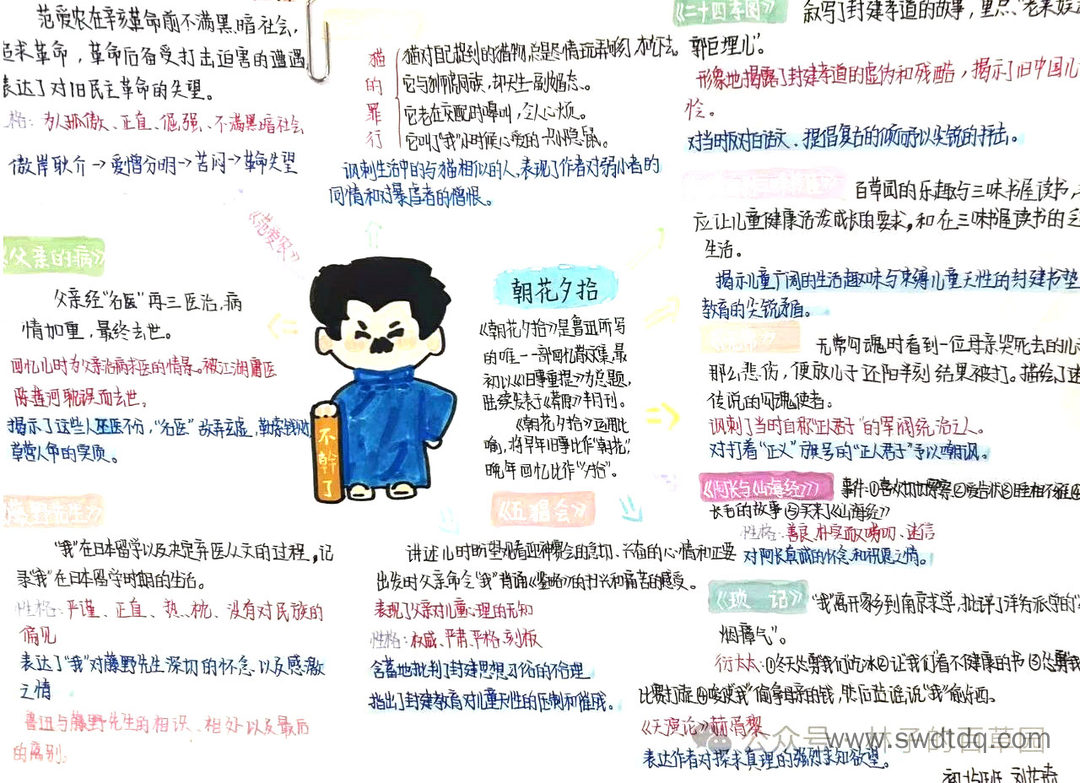 范爱农在辛亥革命前不满黑暗社会,
追求革命，革命后备受打击迫害的遭遇,
表达了对旧民主革命的失望。
为人孤傲、正直、倔强、不满黑暗社会
傲岸耿介→爱憎分明→苦闷→革命失望
《范爱农》
猫的罪行
猫对自己捉到的猎物总是尽情玩弄够了,才吃下去。
它与狮虎同族，却天生一副媚态。
它老在交配时嗥叫，令人心烦。
它叫了"我"小时候心爱的一只小隐鼠。
讽刺生活中的与猫相似的人,表现了作者对弱小者的
同情和对暴虐者的憎恨。
《二十四孝图》
叙写了封建孝道的故事，重点、"老莱娱亲
郭巨埋儿"。
形象地揭露了封建孝道的虚伪和残酷，揭示了旧中国儿
怜。
对当时反对白话文、提倡复古的倾向予以尖锐的抨击。
百草园的乐趣与三味书屋读书,
应让儿童健康活泼成长的要求,和在三味书屋读书的乏
生活。
揭示儿童广阔的生活趣味与束缚儿童天性的封建书塾
教育的尖锐矛盾。
无常勾魂时看到一位母亲哭死去的儿子
那么悲伤，便放儿子还阳半刻 结果被打。描绘了迷
传说的勾魂使者。
讽刺了当时自称"正人君子"的军阀统治之人。
对打着"正义"旗号的"正人君子"予以嘲讽。
《父亲的病》
父亲经"名医"再三医治,病
情加重，最终去世。
回忆儿时为父亲治病求医的情景。被江湖庸医
陈莲河耽误而去世。
揭示了这些人巫医不分，"名医"故弄玄虚，勒索钱财,
草菅人命的实质。
不幹了
朝花夕拾
《朝花夕拾》是鲁迅所写
的唯一一部回忆散文集,最
初以《旧事重提》为总题,
陆续发表于《莽原》半月刊。
《朝花夕拾》运用比
喻，将早年旧事比作"朝花",
晚年回忆比作"夕拾"。
《阿长与《山海经》》
长毛的故事⑤买来《山海经》
性格: 善良、朴实而又唠叨、迷信
对阿长真诚的怀念和讯恩之情。
藤野先生》
"我"在日本留学以及决定弃医从文的过程,记
录"我"在日本留学时期的生活。
性格:严谨、正直、热忱、没有对民族的
偏见
表达了"我"对藤野先生深切的怀念以及感激
之情
鲁迅与藤野先生的相识、相处以及最后
的离别.
《五猖会》
讲述儿时盼望观看迎神赛会的急切、兴奋的心情和正要
出发时父亲命令"我"背诵《鉴略》的扫兴和痛苦的感受。
表现了父亲对儿童心理的无知
性格: 权威、严肃、严格、刻板
含蓄地批判了封建思想习俗的不合理
指出了封建教育对儿童天性的压制和摧残。
《琐 记》
"我"离开家乡到南京求学，批评了洋务派学的
烟瘴气"。
衍太太:①冬天怂恿我们吃冰②让我们看不健康的书③怂恿我
比赛打旋④唆使"我"偷拿母亲的钱，然后造谣说"我"偷东西。
《天演论》 赫胥黎
表达作者对探求真理的强烈求知欲望。
公众号
www.swdtdq.com